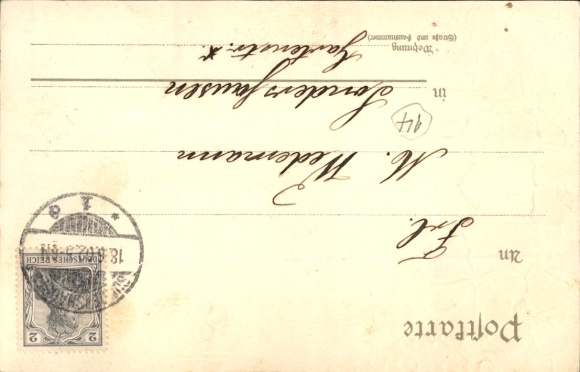 Postkarte
An
Frl.
M. Wedemann
in Sondershausen
Wohnung
(Straße und Hausnummer)
Gartenstr.
14
2
DEUTSCHES REICH
2
18.6.02
* 1 a